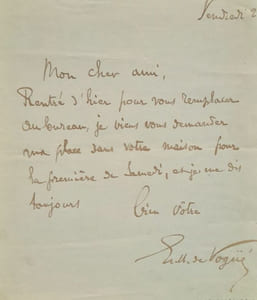 Vendredi 2
Mon cher ami,
Rentré d'hier pour vous remplacer
au bureau, je viens vous demander
ma place dans votre maison pour
la première de Samedi, et je me dis
toujours bien vôtre
E. M. de Vogüé